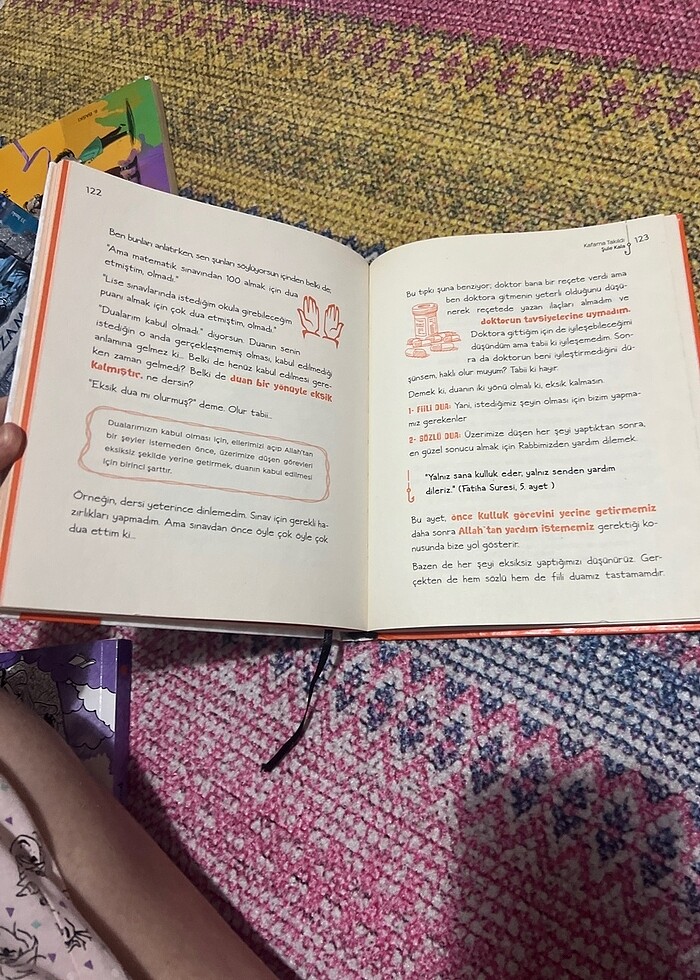 122
Ben bunları anlatırken, sen şunları söylüyorsun içinden belki de.
"Ama matematik sınavından 100 almak için dua
etmiştim, olmadı."
"Lise sınavlarında istediğim okula girebileceğim
puanı almak için çok dua etmiştim, olmadı."
"Dualarım kabul olmadı," diyorsun. Duanın senin
istediğin o anda gerçekleşmemiş olması, kabul edilmediği
anlamına gelmez ki... Belki de henüz kabul edilmesi gere-
ken zaman gelmedi? Belki de duan bir yönüyle eksik
kalmıştır, ne dersin?
"Eksik dua mı olurmuş?" deme. Olur tabii...
Dualarımızın kabul olması için, ellerimizi açıp Allah'tan
bir şeyler istemeden önce, üzerimize düşen görevleri
eksiksiz şekilde yerine getirmek, duanın kabul edilmesi
için birinci şarttır.
Örneğin, dersi yeterince dinlemedim. Sınav için gerekli ha-
zırlıkları yapmadım. Ama sınavdan önce öyle çok öyle çok
dua ettim ki...
Kafama Takıldı
Şule Kala
123
Bu tıpkı şuna benziyor; doktor bana bir reçete verdi ama
ben doktora gitmenin yeterli olduğunu düşü-
nerek reçetede yazan ilaçları almadım ve
doktorun tavsiyelerine uymadım.
Doktora gittiğim için de iyileşebileceğimi
düşündüm ama tabii ki iyileşemedim. Son-
ra da doktorun beni iyileştirmediğini dü-
şünsem, haklı olur muyum? Tabii ki hayır.
Demek ki, duanın iki yönü olmalı ki, eksik kalmasın.
1- FİİLİ DUA: Yani, istediğimiz şeyin olması için bizim yapma-
mız gerekenler
2- SÖZLÜ DUA: Üzerimize düşen her şeyi yaptıktan sonra,
en güzel sonucu almak için Rabbimizden yardım dilemek.
"Yalnız sana kulluk eder, yalnız senden yardım
dileriz." (Fatiha Suresi, 5. ayet )
Bu ayet, önce kulluk görevini yerine getirmemiz
daha sonra Allah'tan yardım istememiz gerektiği ko-
nusunda bize yol gösterir.
Bazen de her şeyi eksiksiz yaptığımızı düşünürüz. Ger-
çekten de hem sözlü hem de fiili duamız tastamamdır.